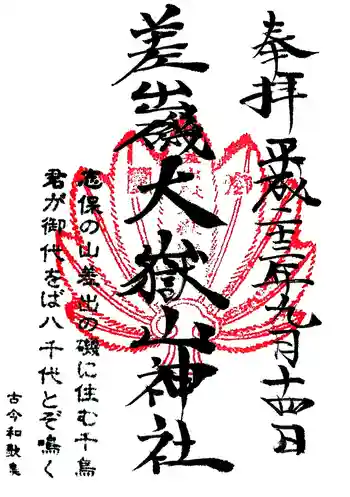 奉拝
平成二十三年九月十四日
差出磯大嶽山神社
志保の山差出の磯に住む千鳥
君が御代をば八千代とぞ鳴く
古今和歌集